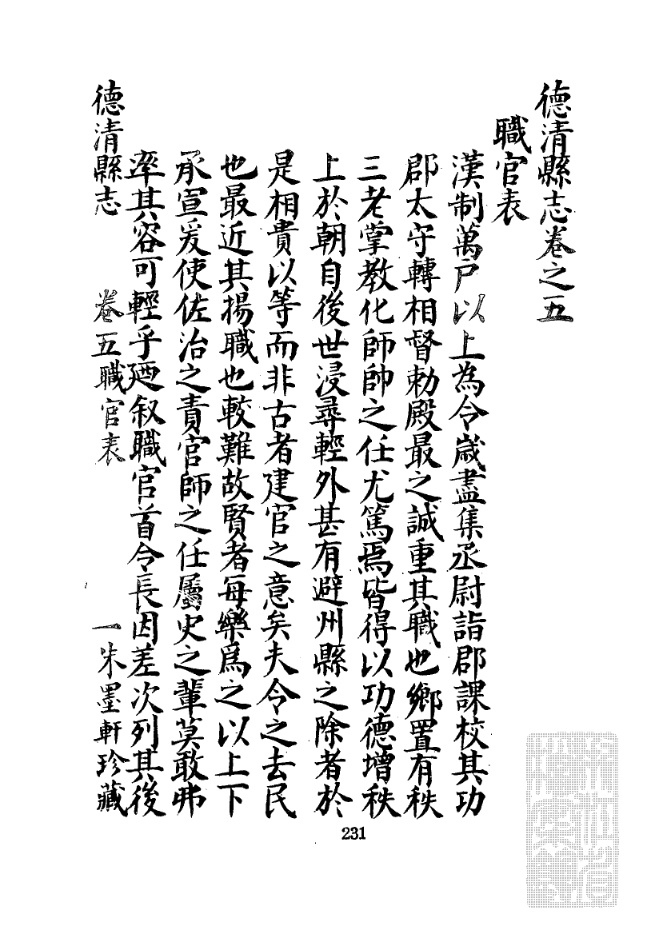 德清縣志卷之五
職官表
漢制萬戶以上為令歲盡集丞尉詣郡課校其功
郡太守轉相督勅殿最之誠重其職也鄉置有秩
三老掌教化師帥之任尤篤焉皆得以功德增秩
上於朝自後世浸尋輕外甚有避州縣之除者於
是相貴以等而非古者建官之意矣夫令之去民
也最近其揚職也較難故賢者每樂爲之以上下
承宣爰使佐治之責官師之任屬史之輩莫敢弗
率其容可輕乎廼叙職官首令長因差次列其後
德清縣志 卷五職官表 一朱墨軒珍藏
231